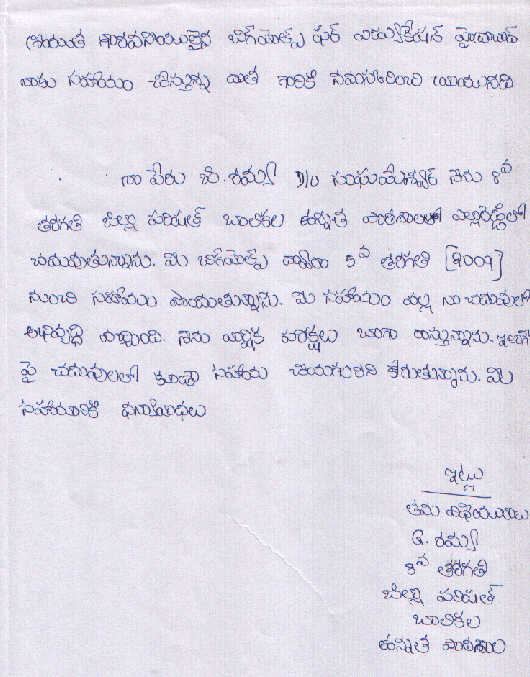 గౌరవనీయులైన ఫర్ ఎడ్యుకేషన్ హైదరాబాద్
వారు సహాయం చేస్తున్న దాత గారికి నమస్కరించి
నా పేరు జి. రమ్య D/o నేను 8వ
తరగతి జిల్లా పరిషత్ బాలికల ఉన్నత పాఠశాలలో ఎల్లారెడ్డిలో
చదువుతున్నాను. మీ ద్వారా 5వ తరగతి [2009]
నుంచి సహాయం పొందుతున్నాను. మీ సహాయం వల్ల నా చదువులో
అభివృద్ధి వచ్చింది. నేను వార్షిక పరీక్షలు బాగా రాస్తున్నాను. ఇలాగే
పై చదువులలో కూడా సహాయం చేయగలరని కోరుతున్నాను. మీ
సహాయానికి ధన్యవాదాలు
ఇట్లు
తమ విధేయురాలు
G. రమ్య
8వ తరగతి
జిల్లా పరిషత్
బాలికల
ఉన్నత పాఠశాల